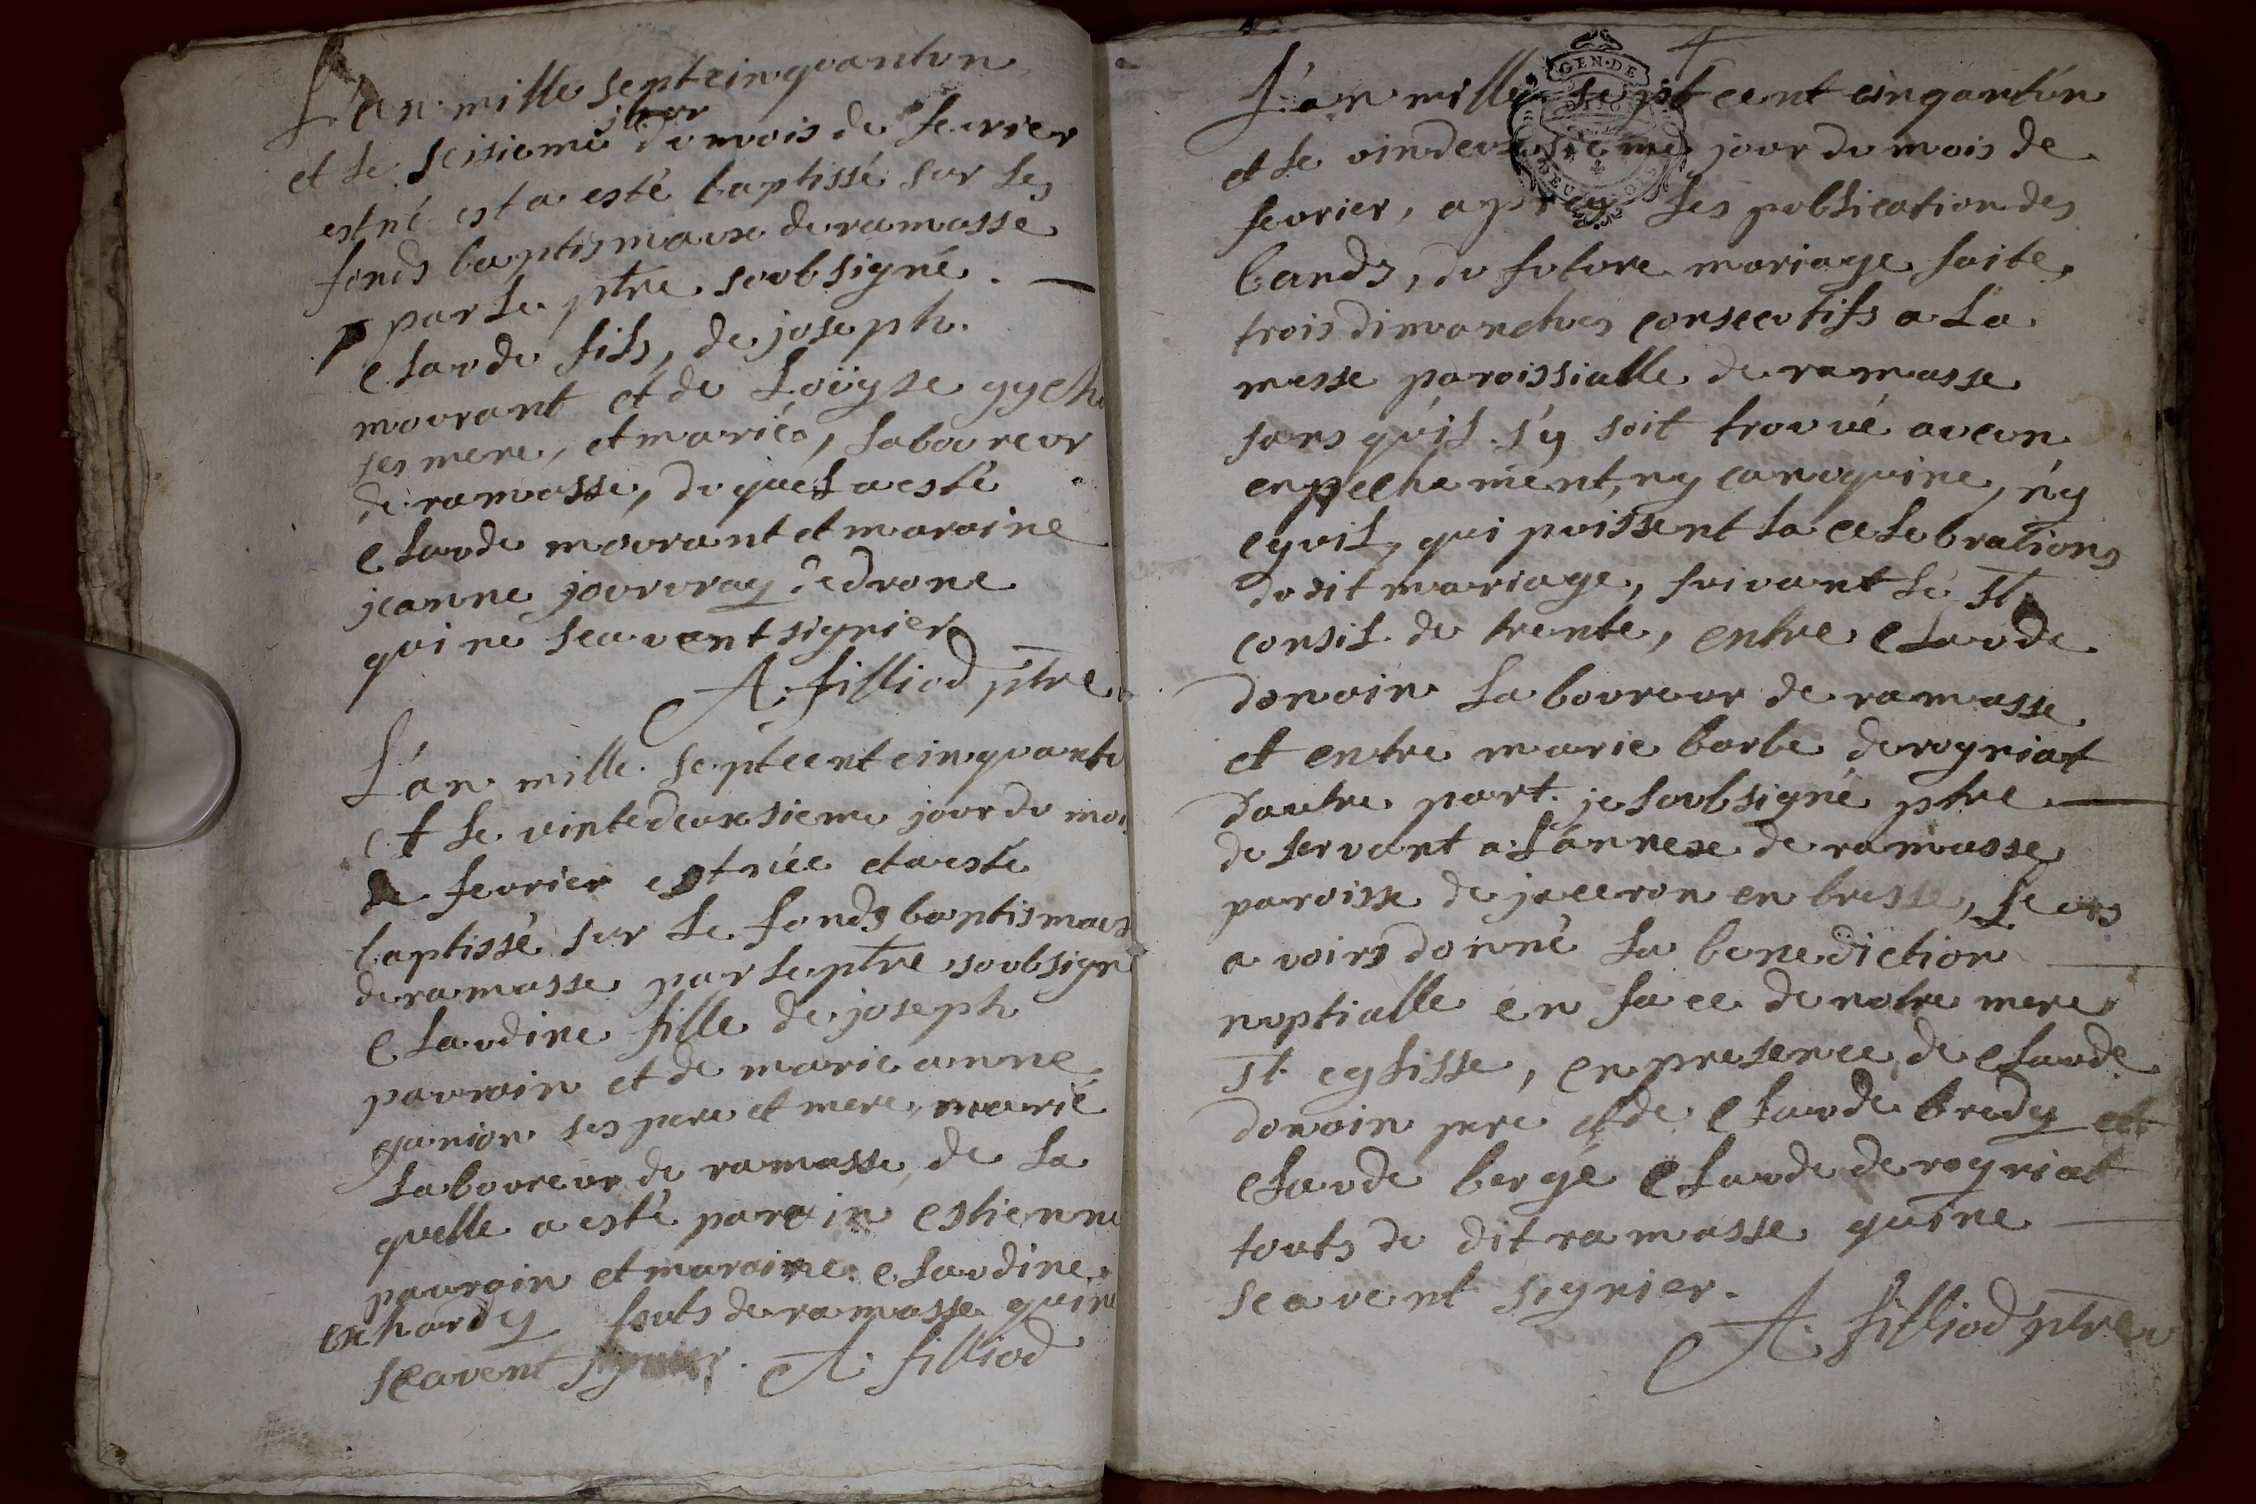 L'an mille septcinquantun
et le seisieme jour du mois de feurier
est né est a esté baptissé sur les
fonds baptismaux de ramasse
par le ptre soubsigné.
claude fils, de joseph
mourant et de Loüyse gych
ses mere, et mariés, laboureur
de ramasse, du quel a esté
claude mourant et maraine
jeanne jourvray de drone
qui ne scavent signier
A. filliod ptre
L'an mille septcent cinquant
et le vintedeuxsieme jour du moi
de feurier est née et a esté
baptissé sur le fonds baptismaux
de ramasse par le ptre soubsigné
claudine fille de joseph
pauroin et de marie anne
ganion ses pere et mere, marié
laboureur de ramasse, de la
quelle a esté parain estienne
pauroin et maraine claudine
exhardy touts de ramasse quine
scavent signier. A. filliod
4
GEN. DE
DEUX SOLS
L'an mille septcent cinqantún
et le vindeuxsieme jour du mois de
feurier, aprey les poblication des
bands, du future mariage faite,
trois dimanches consecutifs a la
messe paroissialle de ramasse
sans qu'il s'y soit trouvé aucun
enpechement, ny canoquine, n'y
cyvil, qui puissent la celebrations
dudit mariage, suivant le st
consil de trente, entre claude
donoin laboureur de ramasse
et entre marie barbe derogniat
dautre part. je soubsigné ptre
deservant a l'annexe de ramasse
paroisse de jaceron en bresse, leurs
avoirs donné la benediction
noptialle en face de notre mere
st. eglisse, en presence de claude
donoin pere et de claude bredy et
claude bergé claude derogniat
touts du dit ramasse quine
scavent signier.
A. filliod ptre